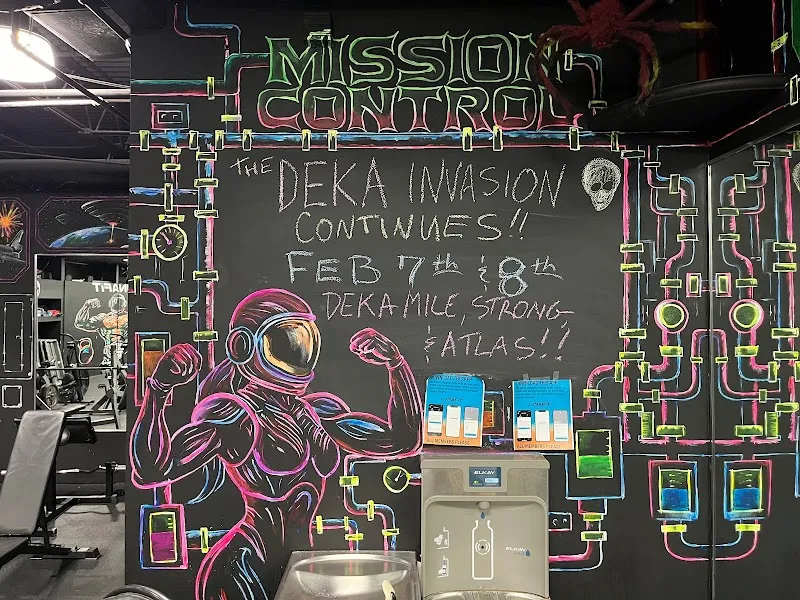 MISSION
CONTROL
THE DEKA INVASION
CONTINUES!!
FEB 7th & 8th
DEKA MILE, STRONG,
& ATLAS!!
ALL MEMBERS PLEASE
ELKAY
ELKAY